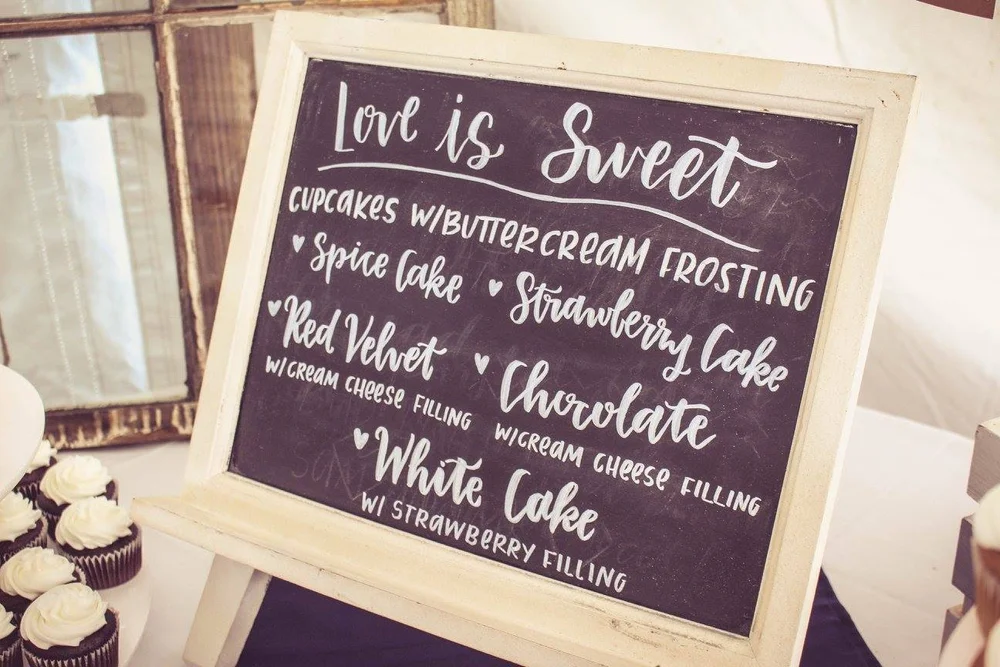 Love is Sweet
CUPCAKES W/BUTTERCREAM FROSTING
♥ Spice Cake ♥ Strawberry Cake
♥ Red Velvet ♥ Chocolate
W/CREAM CHEESE FILLING W/CREAM CHEESE FILLING
♥ White Cake
W/ STRAWBERRY FILLING